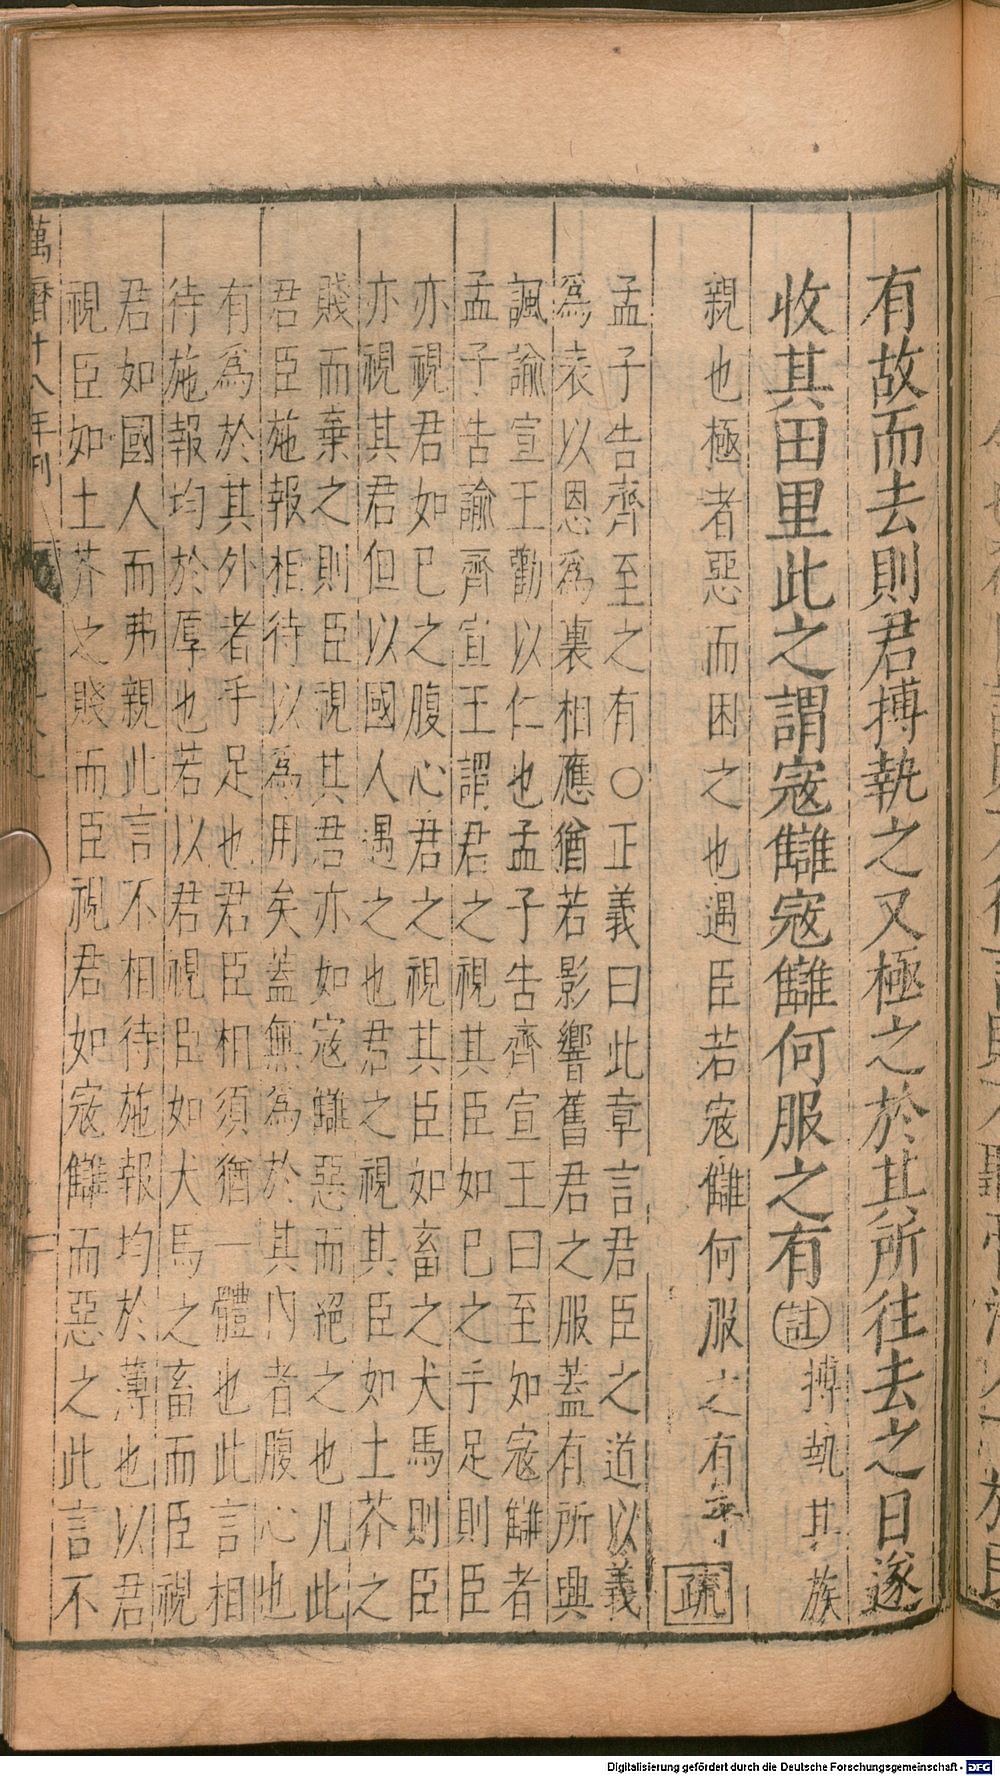 有故而去則君搏執之又極之於其所往去之日遂
收其田里此之謂寇讎寇讎何服之有註搏執其族
親也極者惡而困之也遇臣若寇讎何服之有乎疏
孟子告齊至之有〇正義曰此章言君臣之道以義
爲表以恩爲裏相應猶若影響舊君之服蓋有所興
諷諭宣王勸以仁也孟子告齊宣王曰至如寇讎者
孟子告諭齊宣王謂君之視其臣如已之手足則臣
亦視君如已之腹心君之視其臣如畜之犬馬則臣
亦視其君但以國人遇之也君之視其臣如土芥之
賤而棄之則臣視其君亦如寇讎惡而絕之也凡此
君臣施報相待以爲用矣蓋無爲於其內者腹心也
有爲於其外者手足也君臣相須猶一體也此言相
待施報均於厚也若以君視臣如犬馬之畜而臣視
君如國人而弗親此言不相待施報均於薄也以君
視臣如土芥之賤而臣視君如寇讎而惡之此言不
萬曆十八年刊
Digitalisierung gefördert durch die Deutsche Forschungsgemeinschaft - DFG